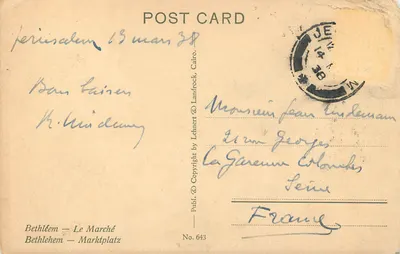 POST CARD
Jerusalem 13 mars 38
Bons baisers
R. Lindemann
JE
14
38
M
Monsieur Jean Lindemann
21 rue Georges
La Garenne Colombes
Seine
France
Publ. & Copyright by Lehnert & Landrock, Cairo.
Bethléem — Le Marché
Bethlehem — Marktplatz
No. 643